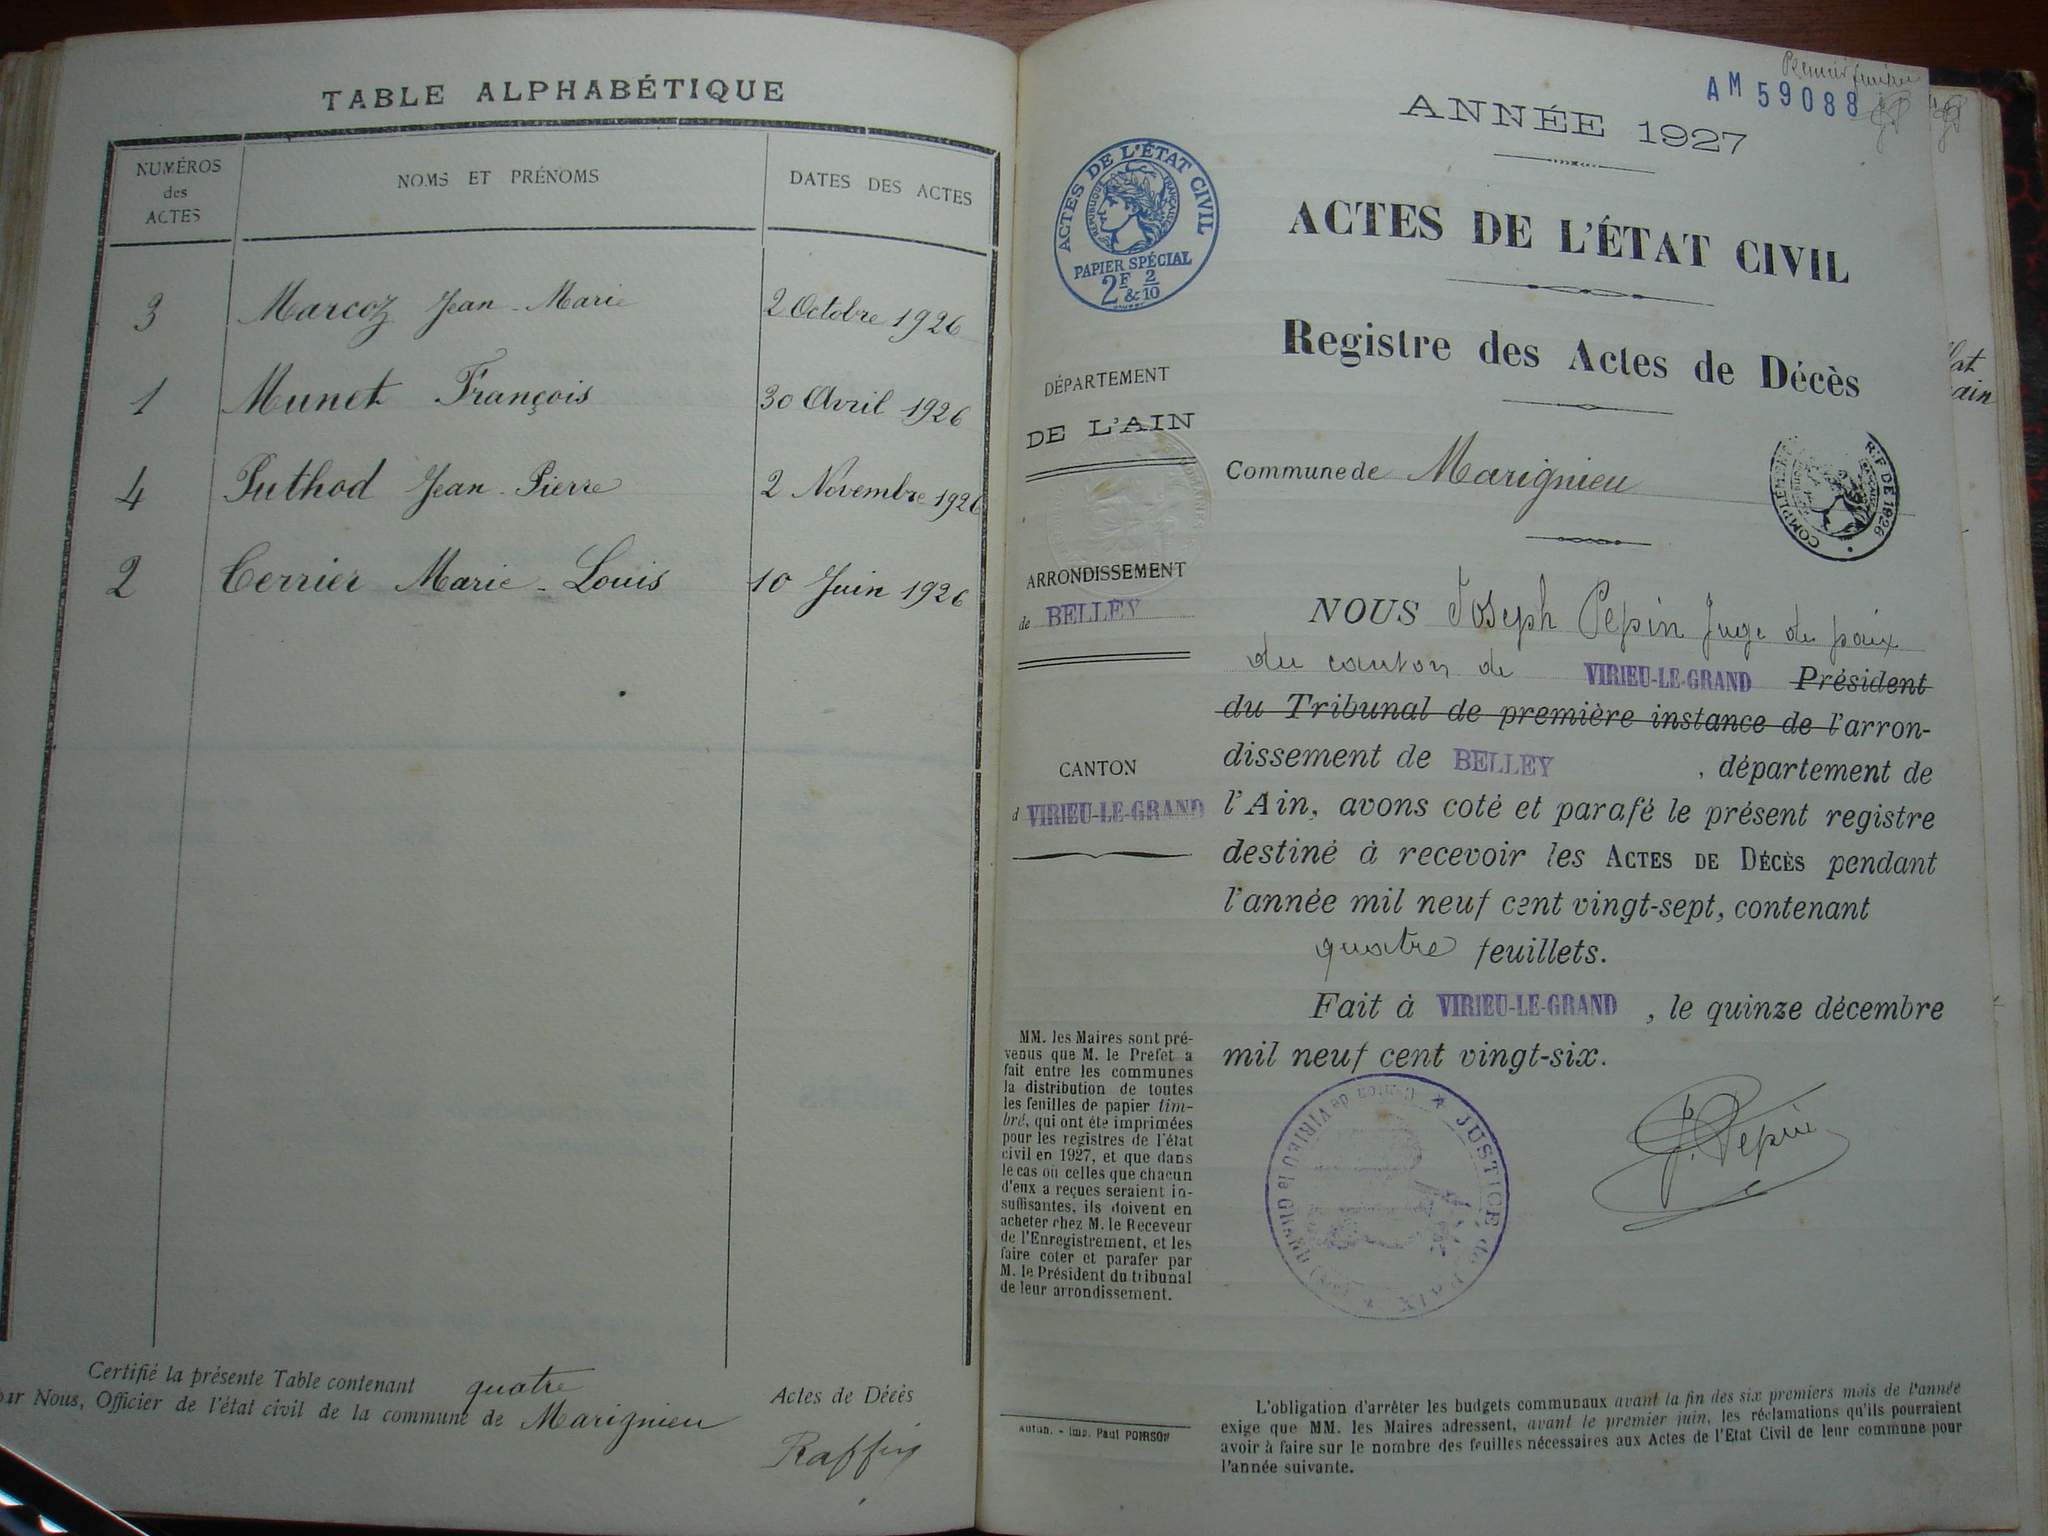 TABLE ALPHABÉTIQUE
NUMÉROS
des
ACTES
NOMS ET PRÉNOMS
DATES DES ACTES
3 Marcoz Jean-Marie 2 Octobre 1926
1 Munet François 30 Avril 1926
4 Puthod Jean-Pierre 2 Novembre 1926
2 Cerrier Marie-Louis 10 Juin 1926
Certifié la présente Table contenant quatre Actes de Décès
ar Nous, Officier de l'état civil de la commune de Marignieu
Raffin
Premier feuillet
AM 59088
ANNÉE 1927
ACTES DE L'ÉTAT CIVIL
RÉPUBLIQUE FRANÇAISE
PAPIER SPÉCIAL
2F & 2/10
ACTES DE L'ÉTAT CIVIL
Registre des Actes de Décès
DÉPARTEMENT
DE L'AIN
Commune de Marignieu
R.F DE 1926
ARRONDISSEMENT
de BELLEY
CANTON
d VIRIEU-LE-GRAND
NOUS Joseph Pepin Juge de paix
du canton de VIRIEU-LE-GRAND Président
du Tribunal de première instance de l'arron-
dissement de BELLEY , département de
l'Ain, avons coté et parafé le présent registre
destiné à recevoir les ACTES DE DÉCÈS pendant
l'année mil neuf cent vingt-sept, contenant
quatre feuillets.
Fait à VIRIEU-LE-GRAND , le quinze décembre
mil neuf cent vingt-six.
MM. les Maires sont pré-
venus que M. le Préfet a
fait entre les communes
la distribution de toutes
les feuilles de papier tim-
bré, qui ont été imprimées
pour les registres de l'état
civil en 1927, et que dans
le cas où celles que chacun
d'eux a reçues seraient in-
suffisantes, ils doivent en
acheter chez M. le Receveur
de l'Enregistrement, et les
faire coter et parafer par
M. le Président du tribunal
de leur arrondissement.
JUSTICE de PAIX
Canton de VIRIEU le GRAND (Ain)
J. Pepin
Autun. - Imp. Paul POIRSON
L'obligation d'arrêter les budgets communaux avant la fin des six premiers mois de l'année
exige que MM. les Maires adressent, avant le premier juin, les réclamations qu'ils pourraient
avoir à faire sur le nombre des feuilles nécessaires aux Actes de l'Etat Civil de leur commune pour
l'année suivante.